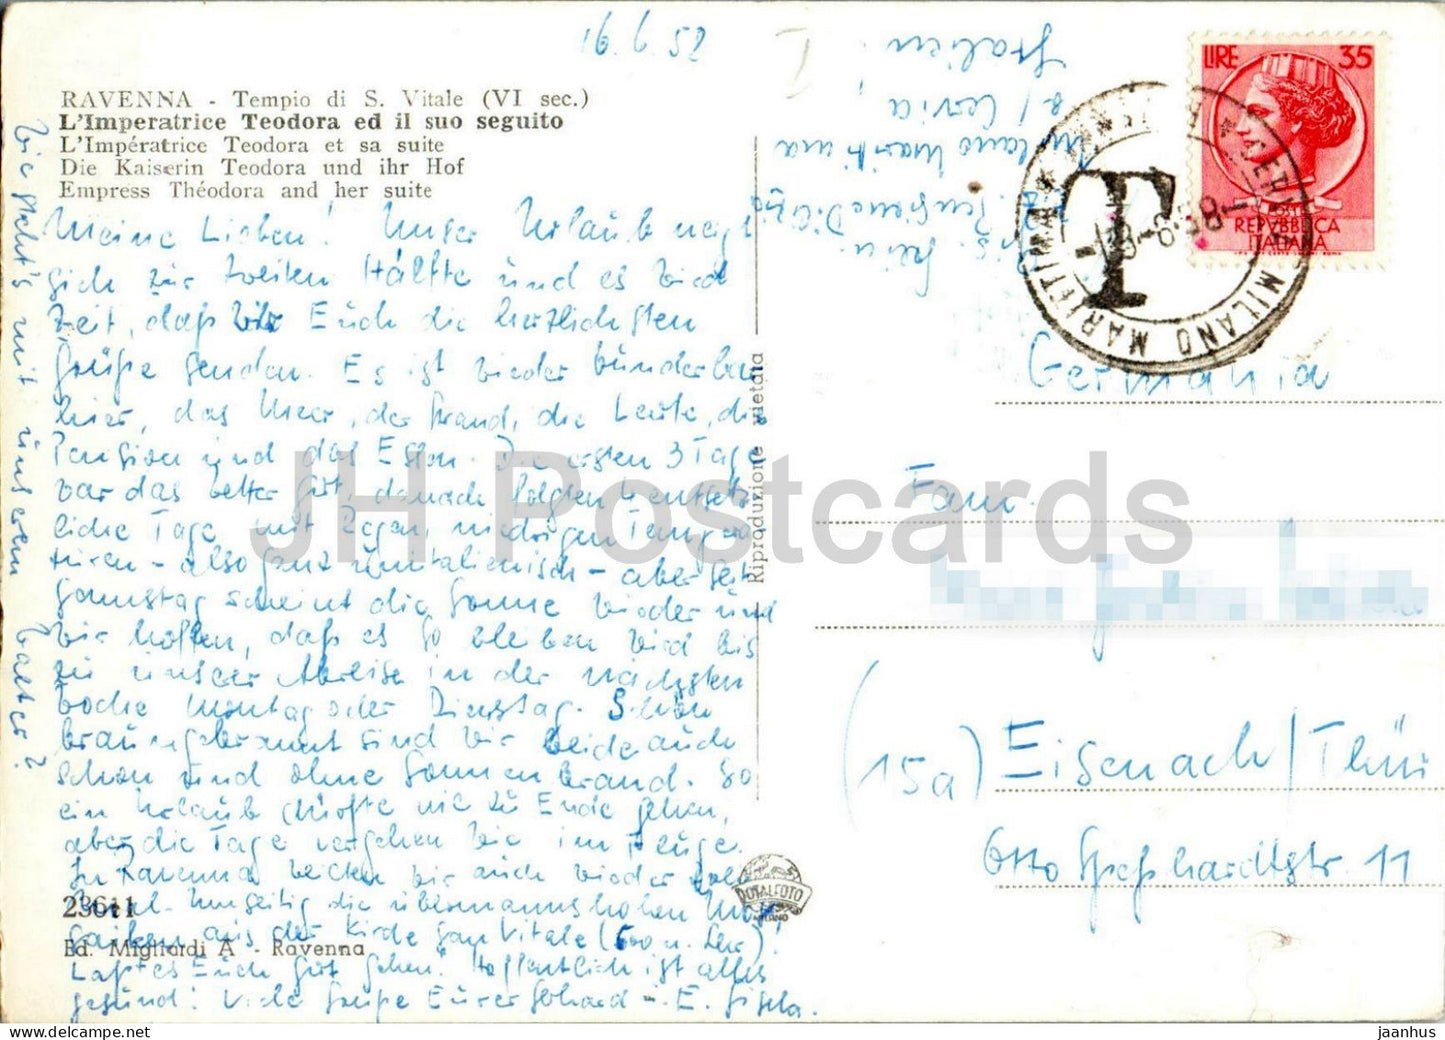 16.6.58
RAVENNA - Tempio di S. Vitale (VI sec.)
L'Imperatrice Teodora ed il suo seguito
L'Impératrice Teodora et sa suite
Die Kaiserin Teodora und ihr Hof
Empress Théodora and her suite
Meine Lieben! Unser Urlaub neigt
sich zur zweiten Hälfte und es wird
Zeit, daß wir Euch die herzlichsten
Grüße senden. Es ist wieder wunderbar
hier, das Meer, der Strand, die Leute, die
Pension und das Essen. Die ersten 3 Tage
war das Wetter gut, danach folgten 4 entsetz-
liche Tage mit Regen, niedrigen Tempera-
turen - also ganz unitalienisch - aber seit
Samstag scheint die Sonne wieder und
wir hoffen, daß es so bleiben wird bis
zu unserer Abreise in der nächsten
Woche Montag oder Dienstag. Schön
braungebrannt sind wir beide auch
schon und ohne Sonnenbrand. So
ein Urlaub dürfte nie zu Ende gehen,
aber die Tage vergehen wie im Fluge.
In Ravenna waren wir auch wieder
Umseitig die
aus der Kirche San Vitale (500 n. Chr.)
Laßt es Euch gut gehen! Hoffentlich ist alles
gesund! Viele Grüße Eurer Gerhard u. E. Gisela.
Wie steht's mit unserem Walter?
23611
Ed. Migliardi A - Ravenna
Riproduzione vietata
DOTALFOTO
MILANO
Pensione
Milano Marittima
b/ Cervia
Italien
LIRE 35
POSTE
REPVBBLICA
ITALIANA
MILANO MARITTIMA
T
Germania
Fam.
(15a) Eisenach/Thür
Otto Speßhardtstr. 11
JH Postcards
jaanhus | www.delcampe.net